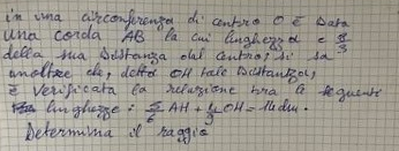 in una circonferenza di centro O è data
una corda AB la cui lunghezza è 8/3
della sua distanza dal centro; si sa
inoltre che, detta OH tale distanza,
è verificata la relazione tra le seguenti
lunghezze: AH + OH = 14 dm.
Determina il raggio